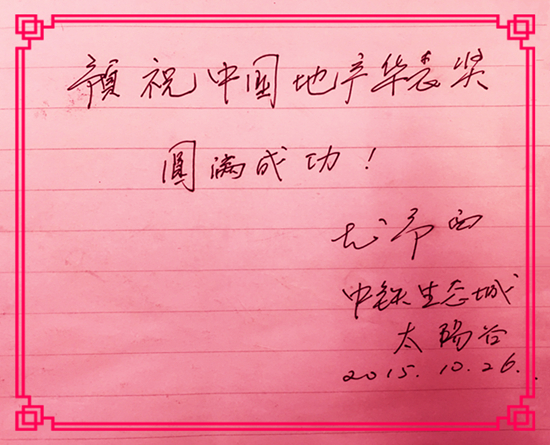 預祝中国地产华表奖
圆满成功！
尤予西
中铁生态城
太陽谷
2015.10.26.